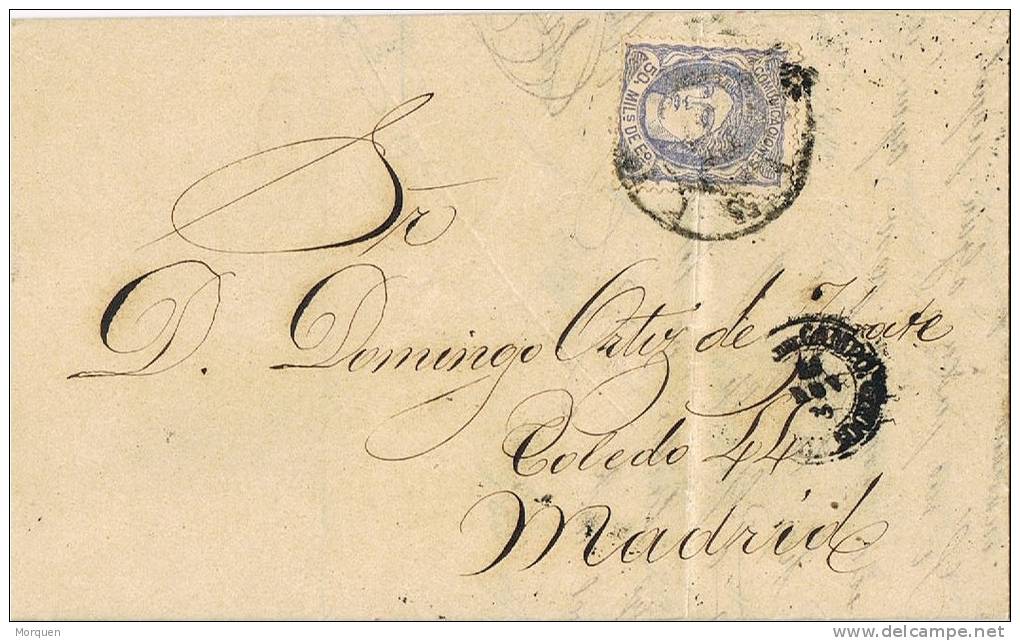 COMUNICACIONES
50. MILS DE EO
Sr
D. Domingo Ortiz de Zarate
CAMPO
Toledo 44
Madrid
Morquen
delcampe.net